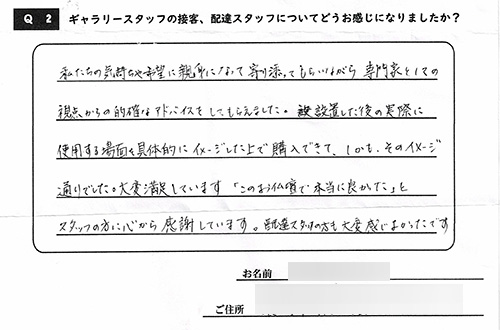 Q 2 ギャラリースタッフの接客、配達スタッフについてどうお感じになりましたか?
私たちの気持ちや希望に親身になって寄り添ってもらいながら 専門家としての
視点からの的確なアドバイスをしてもらえました。設置した後の実際に
使用する場面を具体的にイメージした上で購入できて、しかも、そのイメージ
通りでした。大変満足しています「このお仏壇で本当に良かった」と
スタッフの方に心から感謝しています。配達スタッフの方も大変感じよかったです
お名前
ご住所